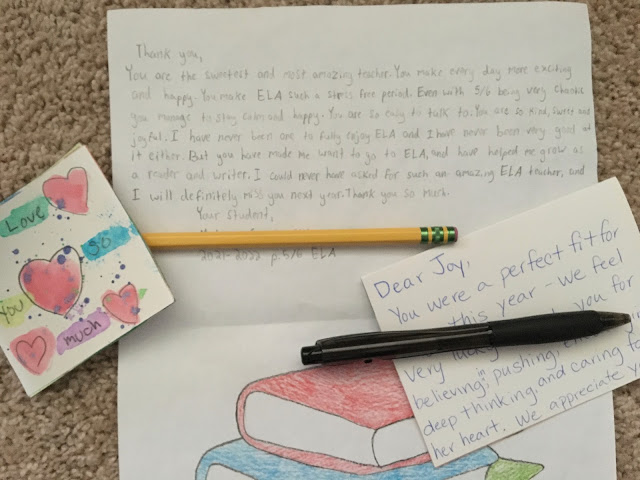 Thank you,
You are the sweetest and most amazing teacher. You make every day more exciting
and happy. You make ELA such a stress free period. Even with 5/6 being very
you manage to stay calm and happy. You are so easy to talk to. You are so kind, sweet and
joyful. I have never been one to fully enjoy ELA and I have never been very good at
it either. But you have made me want to go to ELA, and have helped me grow as
a reader and writer. I could never have asked for such an amazing ELA teacher, and
I will definitely miss you next year. Thank you so much.
Your Student,
2021-2022 p.5/6 ELA
Love
so
you
much
Dear Joy,
You were a perfect fit for
this year - we feel
very you for
believing in, pushing,
deep thinking and caring
her heart. We appreciate